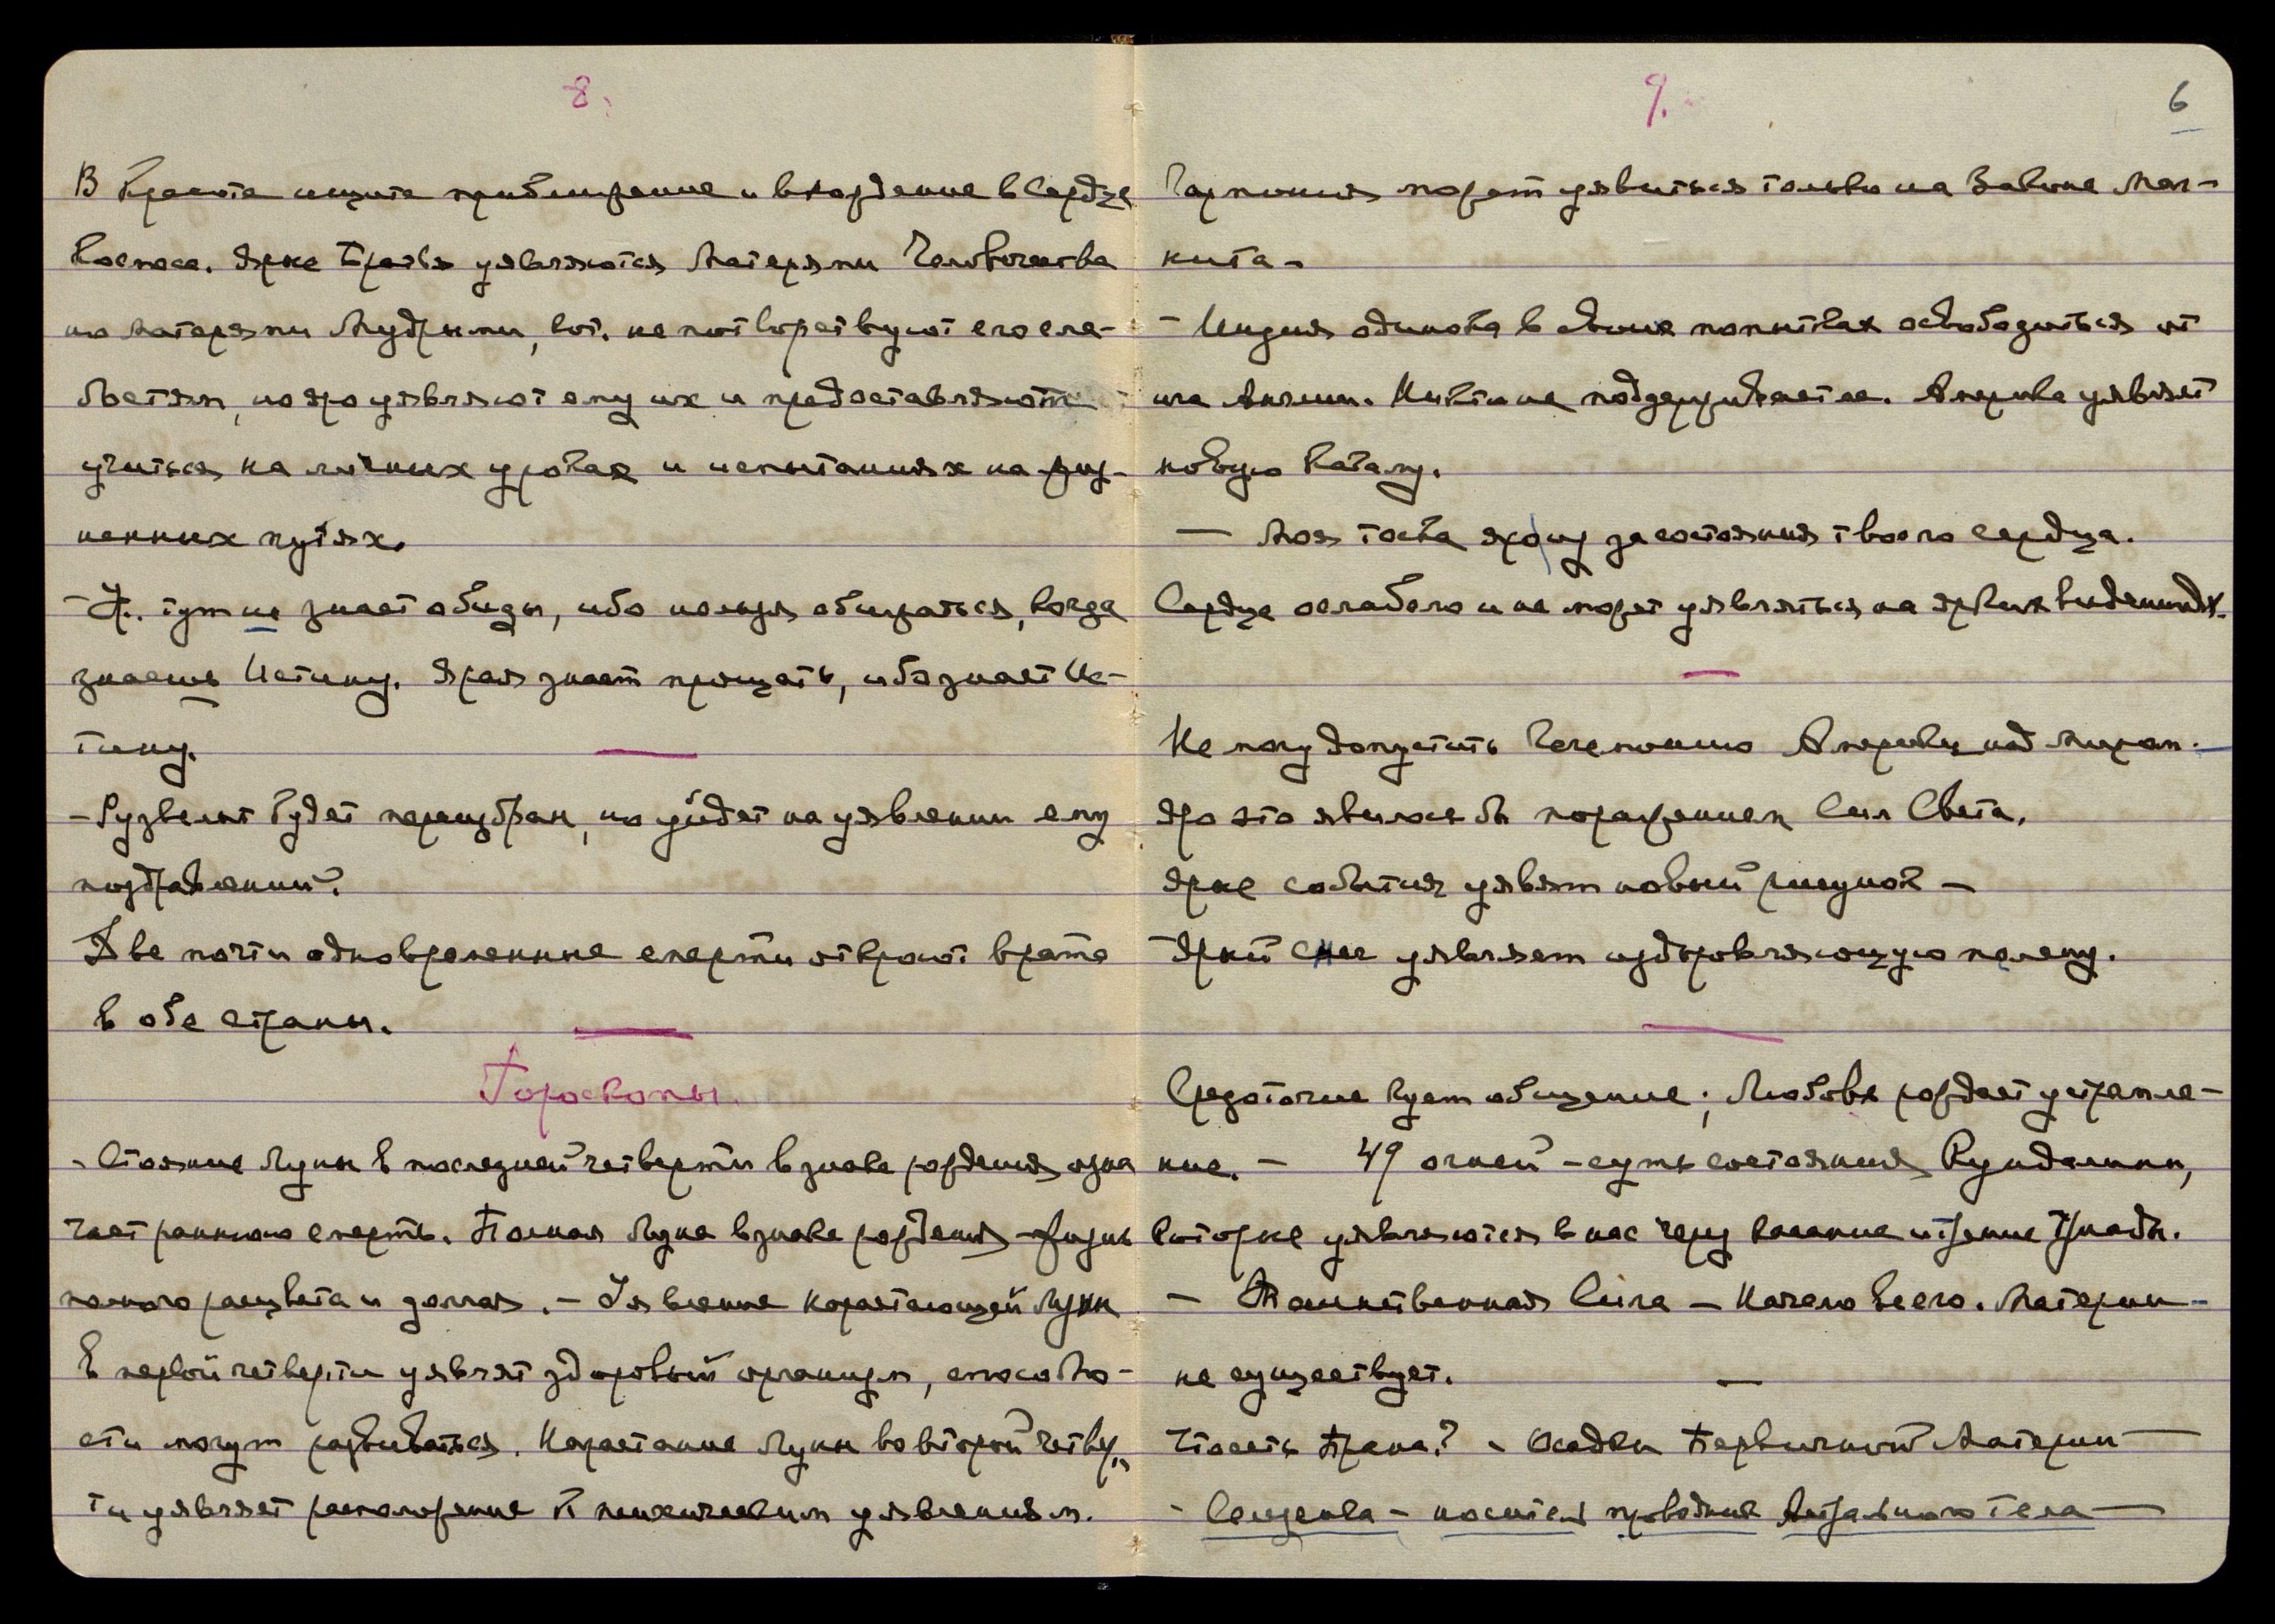 8.
В Красоте ищите приближение и вхождение в Сердце
Космоса. Ярые Братья уявляются Матерями Человечества
но Матерями Мудрыми, кот. не потворствуют его сла-
бостям, но яро уявляют ему их и предоставляют
учиться на личных уроках и испытаниях на жиз-
ненных путях.
- У. тут не знает обиды, ибо нельзя обижаться, когда
знаешь Истину. Ярая знает прощать, ибо знает Ис-
тину.
- Рузвельт будет переизбран, но уйдет на уявлении ему
поздравлений.
Две почти одновременные смерти откроют врата
в обе страны.
Гороскопы.
- Стояние Луны в последней четверти в знаке рождения озна
чает раннюю смерть. Полная Луна в знаке рождения - жизнь
полного расцвета и долгая. - Уявление нарастающей Луны
в первой четверти уявляет здоровый организм, способно-
сти могут развиваться. Нарастание Луны во второй четвер-
ти уявляет расположение к психическим уявлениям.
9.
6
Гармония может уявиться только на Законе Маг-
нита -
- Индия одинока в своих попытках освободиться от
ига Англии. Никто не поддерживает ее. Америка уявляет
новую кабалу.
- Моя тоска за состояния твоего сердца.
Сердце ослабело и не может уявляться на ярких видениях.
Не могу допустить Гегемонию Америки над миром.
Яро это явилось бы поражением Сил Света.
Ярые события уявят новый рисунок -
Ярый снег уявляет издыровляющую пелену.
Средоточие кует общение; Любовь рождает устремле-
ние. - 49 огней - суть состояния Кундалини,
которые уявляются в нас через касание и трение Триады.
- Таинственная Сила - Начало всего. Материи -
не существует.
Что есть Прана? - Осадки Первичной Материи -
- Селезенка - носитель проводник Астрального тела -